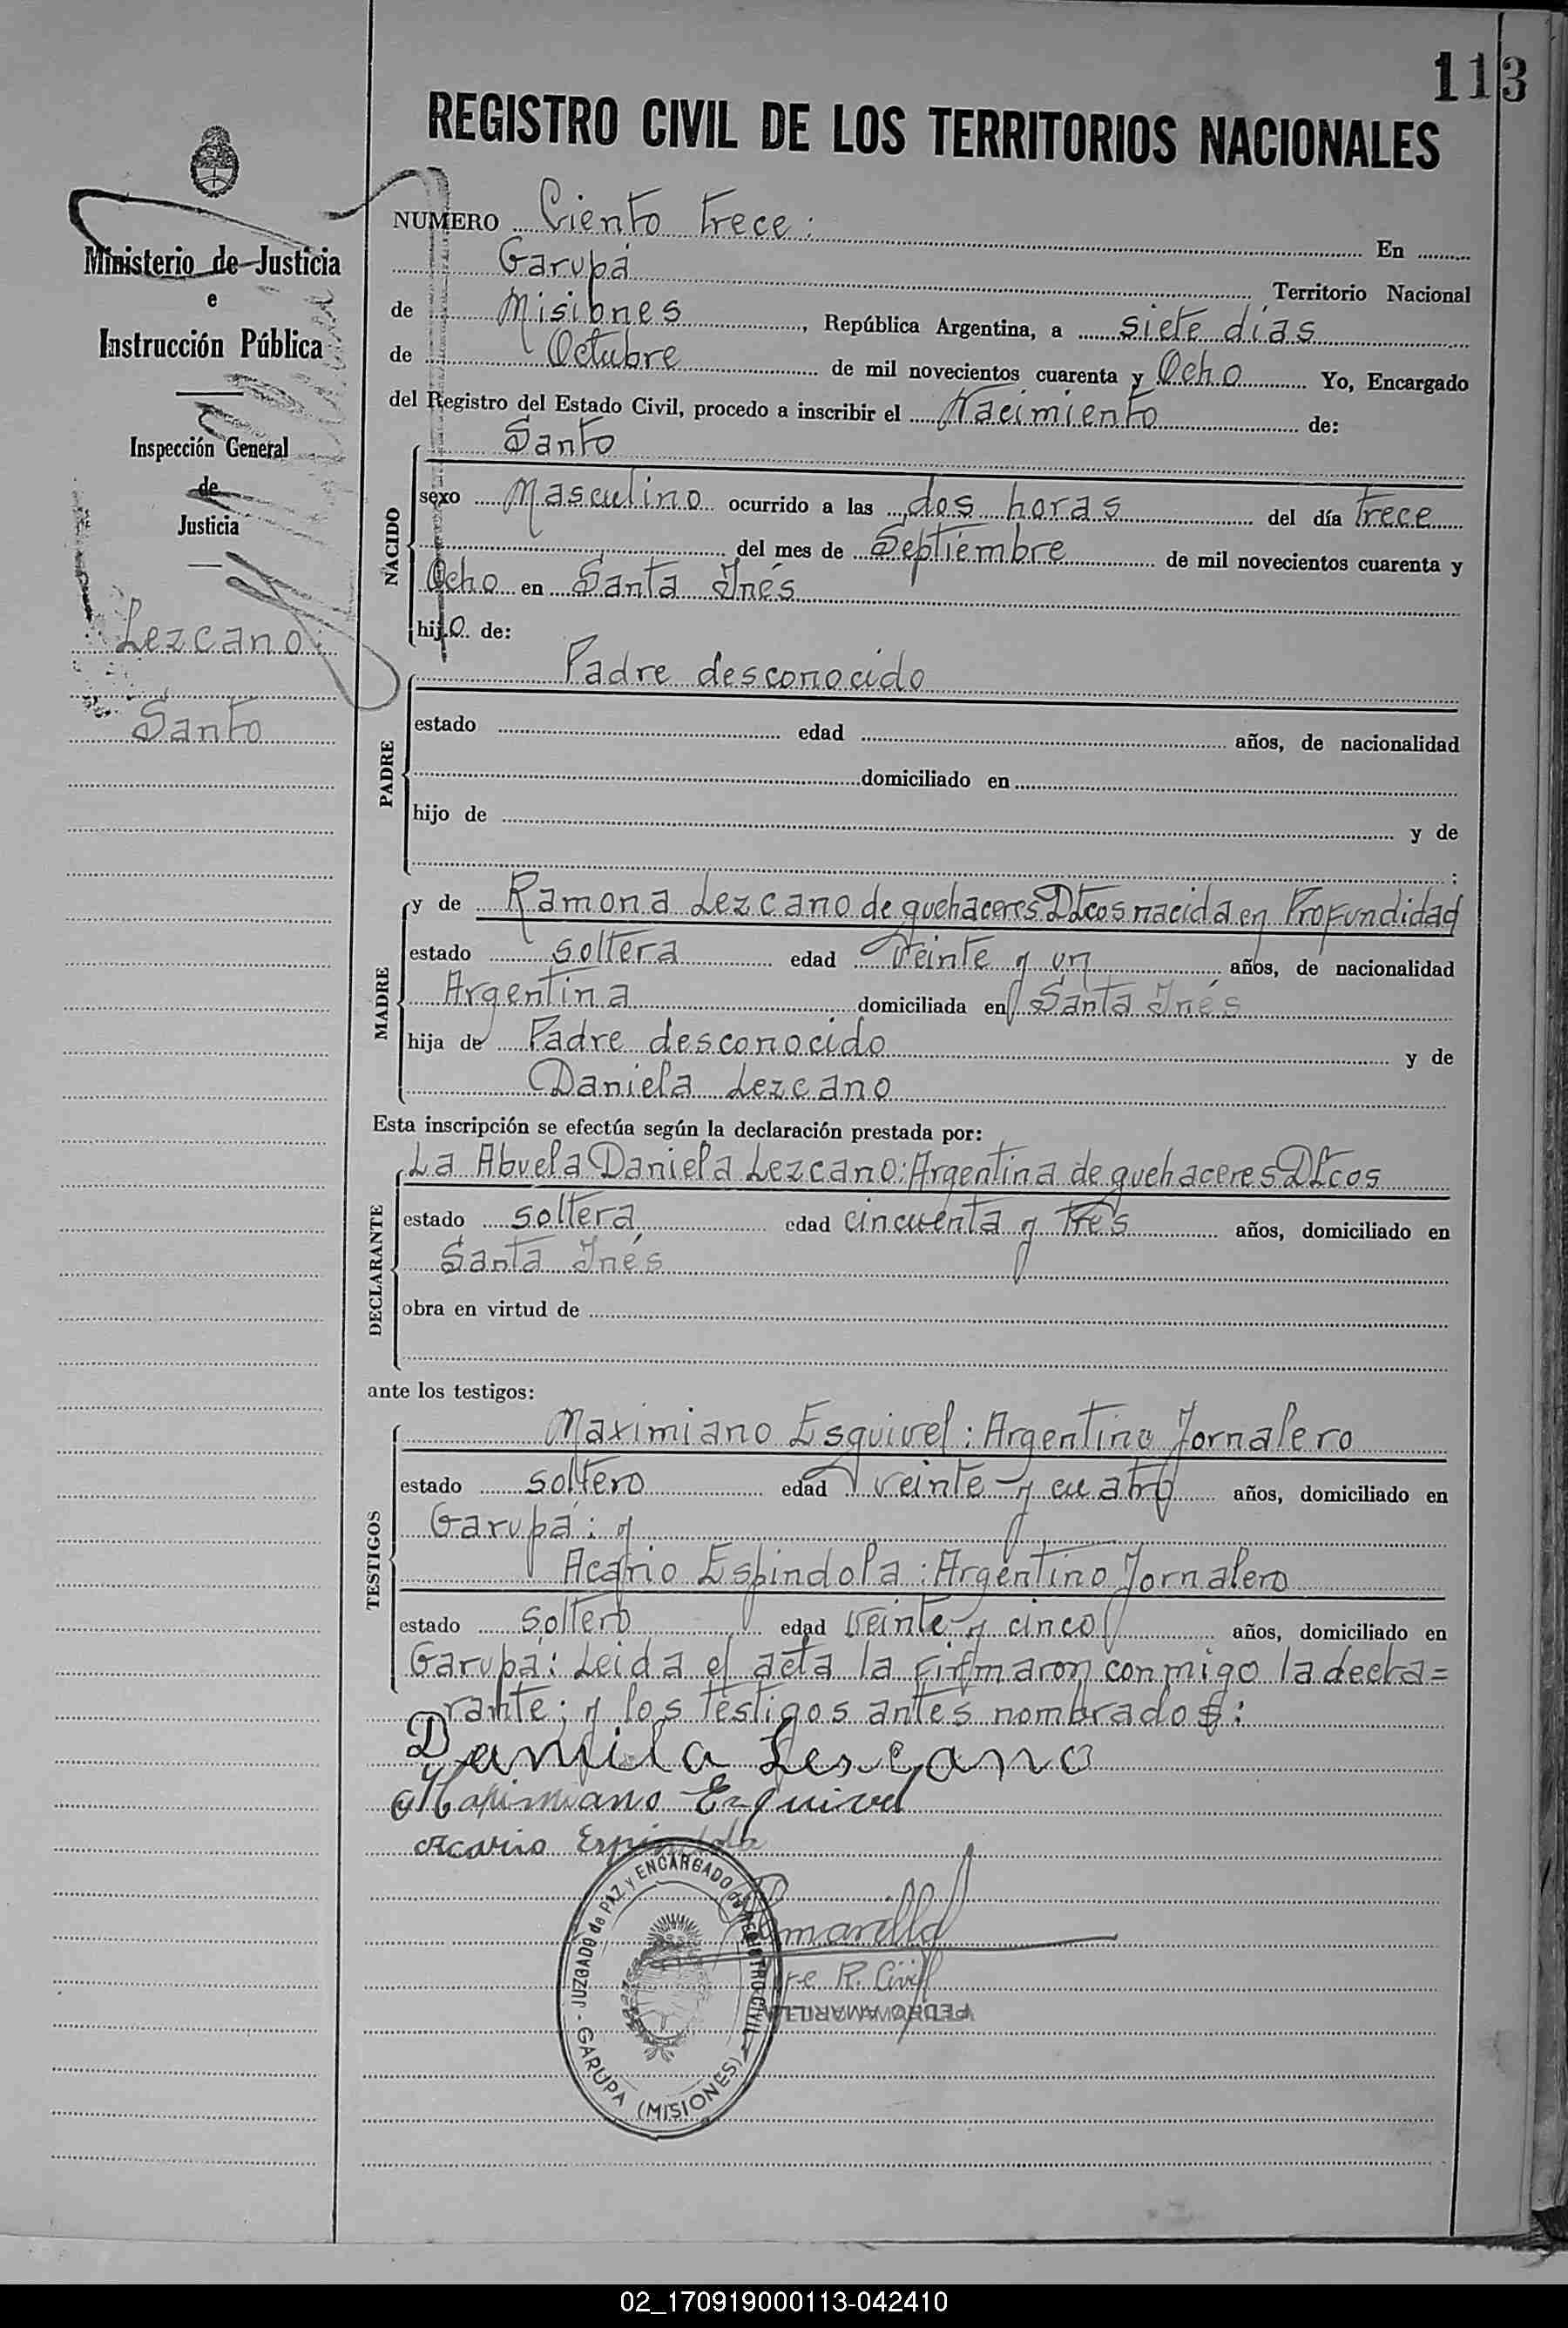 113
REGISTRO CIVIL DE LOS TERRITORIOS NACIONALES
Ministerio de Justicia
e
Instrucción Pública
Inspección General
de
Justicia
Lezcano:
Santo
NUMERO Ciento trece: En
Garupá Territorio Nacional
de Misiones, República Argentina, a siete días
de Octubre de mil novecientos cuarenta y Ocho Yo, Encargado
del Registro del Estado Civil, procedo a inscribir el Nacimiento de:
Santo
NACIDO
sexo Masculino ocurrido a las dos horas del día trece
del mes de Septiembre de mil novecientos cuarenta y
Ocho en Santa Inés
hijo de:
PADRE
Padre desconocido
estado edad años, de nacionalidad
domiciliado en
hijo de y de
;
MADRE
y de Ramona Lezcano de quehaceres Dtcos nacida en Profundidad
estado soltera edad Veinte y un años, de nacionalidad
Argentina domiciliada en Santa Inés
hija de Padre desconocido y de
Daniela Lezcano
Esta inscripción se efectúa según la declaración prestada por:
DECLARANTE
La Abuela Daniela Lezcano: Argentina de quehaceres Dtcos
estado soltera edad cincuenta y tres años, domiciliado en
Santa Inés
obra en virtud de
ante los testigos:
TESTIGOS
Maximiano Esquivel: Argentino Jornalero
estado soltero edad veinte y cuatro años, domiciliado en
Garupá: y
Acario Espindola: Argentino Jornalero
estado soltero edad veinte y cinco años, domiciliado en
Garupá: Leida el acta la firmaron conmigo la decla=
rante; y los testigos antes nombrados:
Daniela Lescano
Maximiano Esquivel
Acario Espindola
JUZGADO de PAZ y ENCARGADO de REGISTRO CIVIL
GARUPA (MISIONES)
Amarilla
R. Civil
PEDRO AMARILLA
02_170919000113-042410